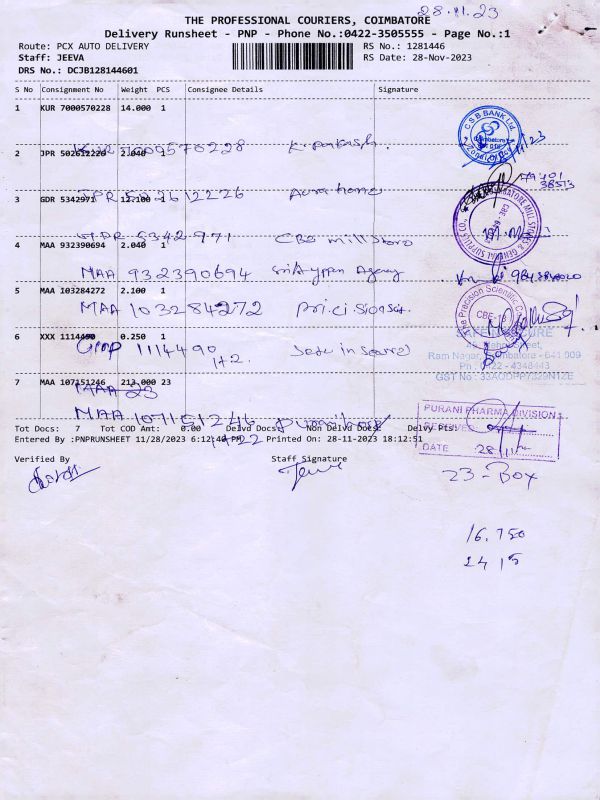 28.11.23
THE PROFESSIONAL COURIERS, COIMBATORE
Delivery Runsheet - PNP - Phone No.:0422-3505555 - Page No.:1
Route: PCX AUTO DELIVERY
RS No.: 1281446
Staff: JEEVA
RS Date: 28-Nov-2023
DRS No.: DCJB128144601
S No Consignment No Weight PCS Consignee Details Signature
1 KUR 7000570228 14.000 1
C S B BANK Ltd.
KUR 70009570228 K. prakash.
2 JPR 502612226 2.040 1
JPR 502612226
3 GDR 5342971 12.100 1
GDR 5342971 CBE mill store
COIMBATORE MILL STORES & GENERAL SUPPLIES CO.,
4 MAA 932390694 2.040 1
MAA 932390694 Sri Ayppan Agency
5 MAA 103284272 2.100 1
MAA 103284272
The Precision Scientific Co.
CBE-18
6 XXX 1114490 0.250 1
1114490
1+2.
SAFE SECURE
Nehru Street,
Ram Nagar, Coimbatore - 641 009
Ph : 0422 - 4348443
7 MAA 107151246 213.000 23
MAA 23
MAA 107151246
1+22
PURANI PHARMA DIVISION
RECEIVED
DATE 28/11/
Tot Docs: 7 Tot COD Amt: 0.00 Delvd Docs: Non Delvd Docs: Delvy Pts:
Entered By :PNPRUNSHEET 11/28/2023 6:12:40 PM Printed On: 28-11-2023 18:12:51
Verified By Staff Signature
23-Box
16.750
2415